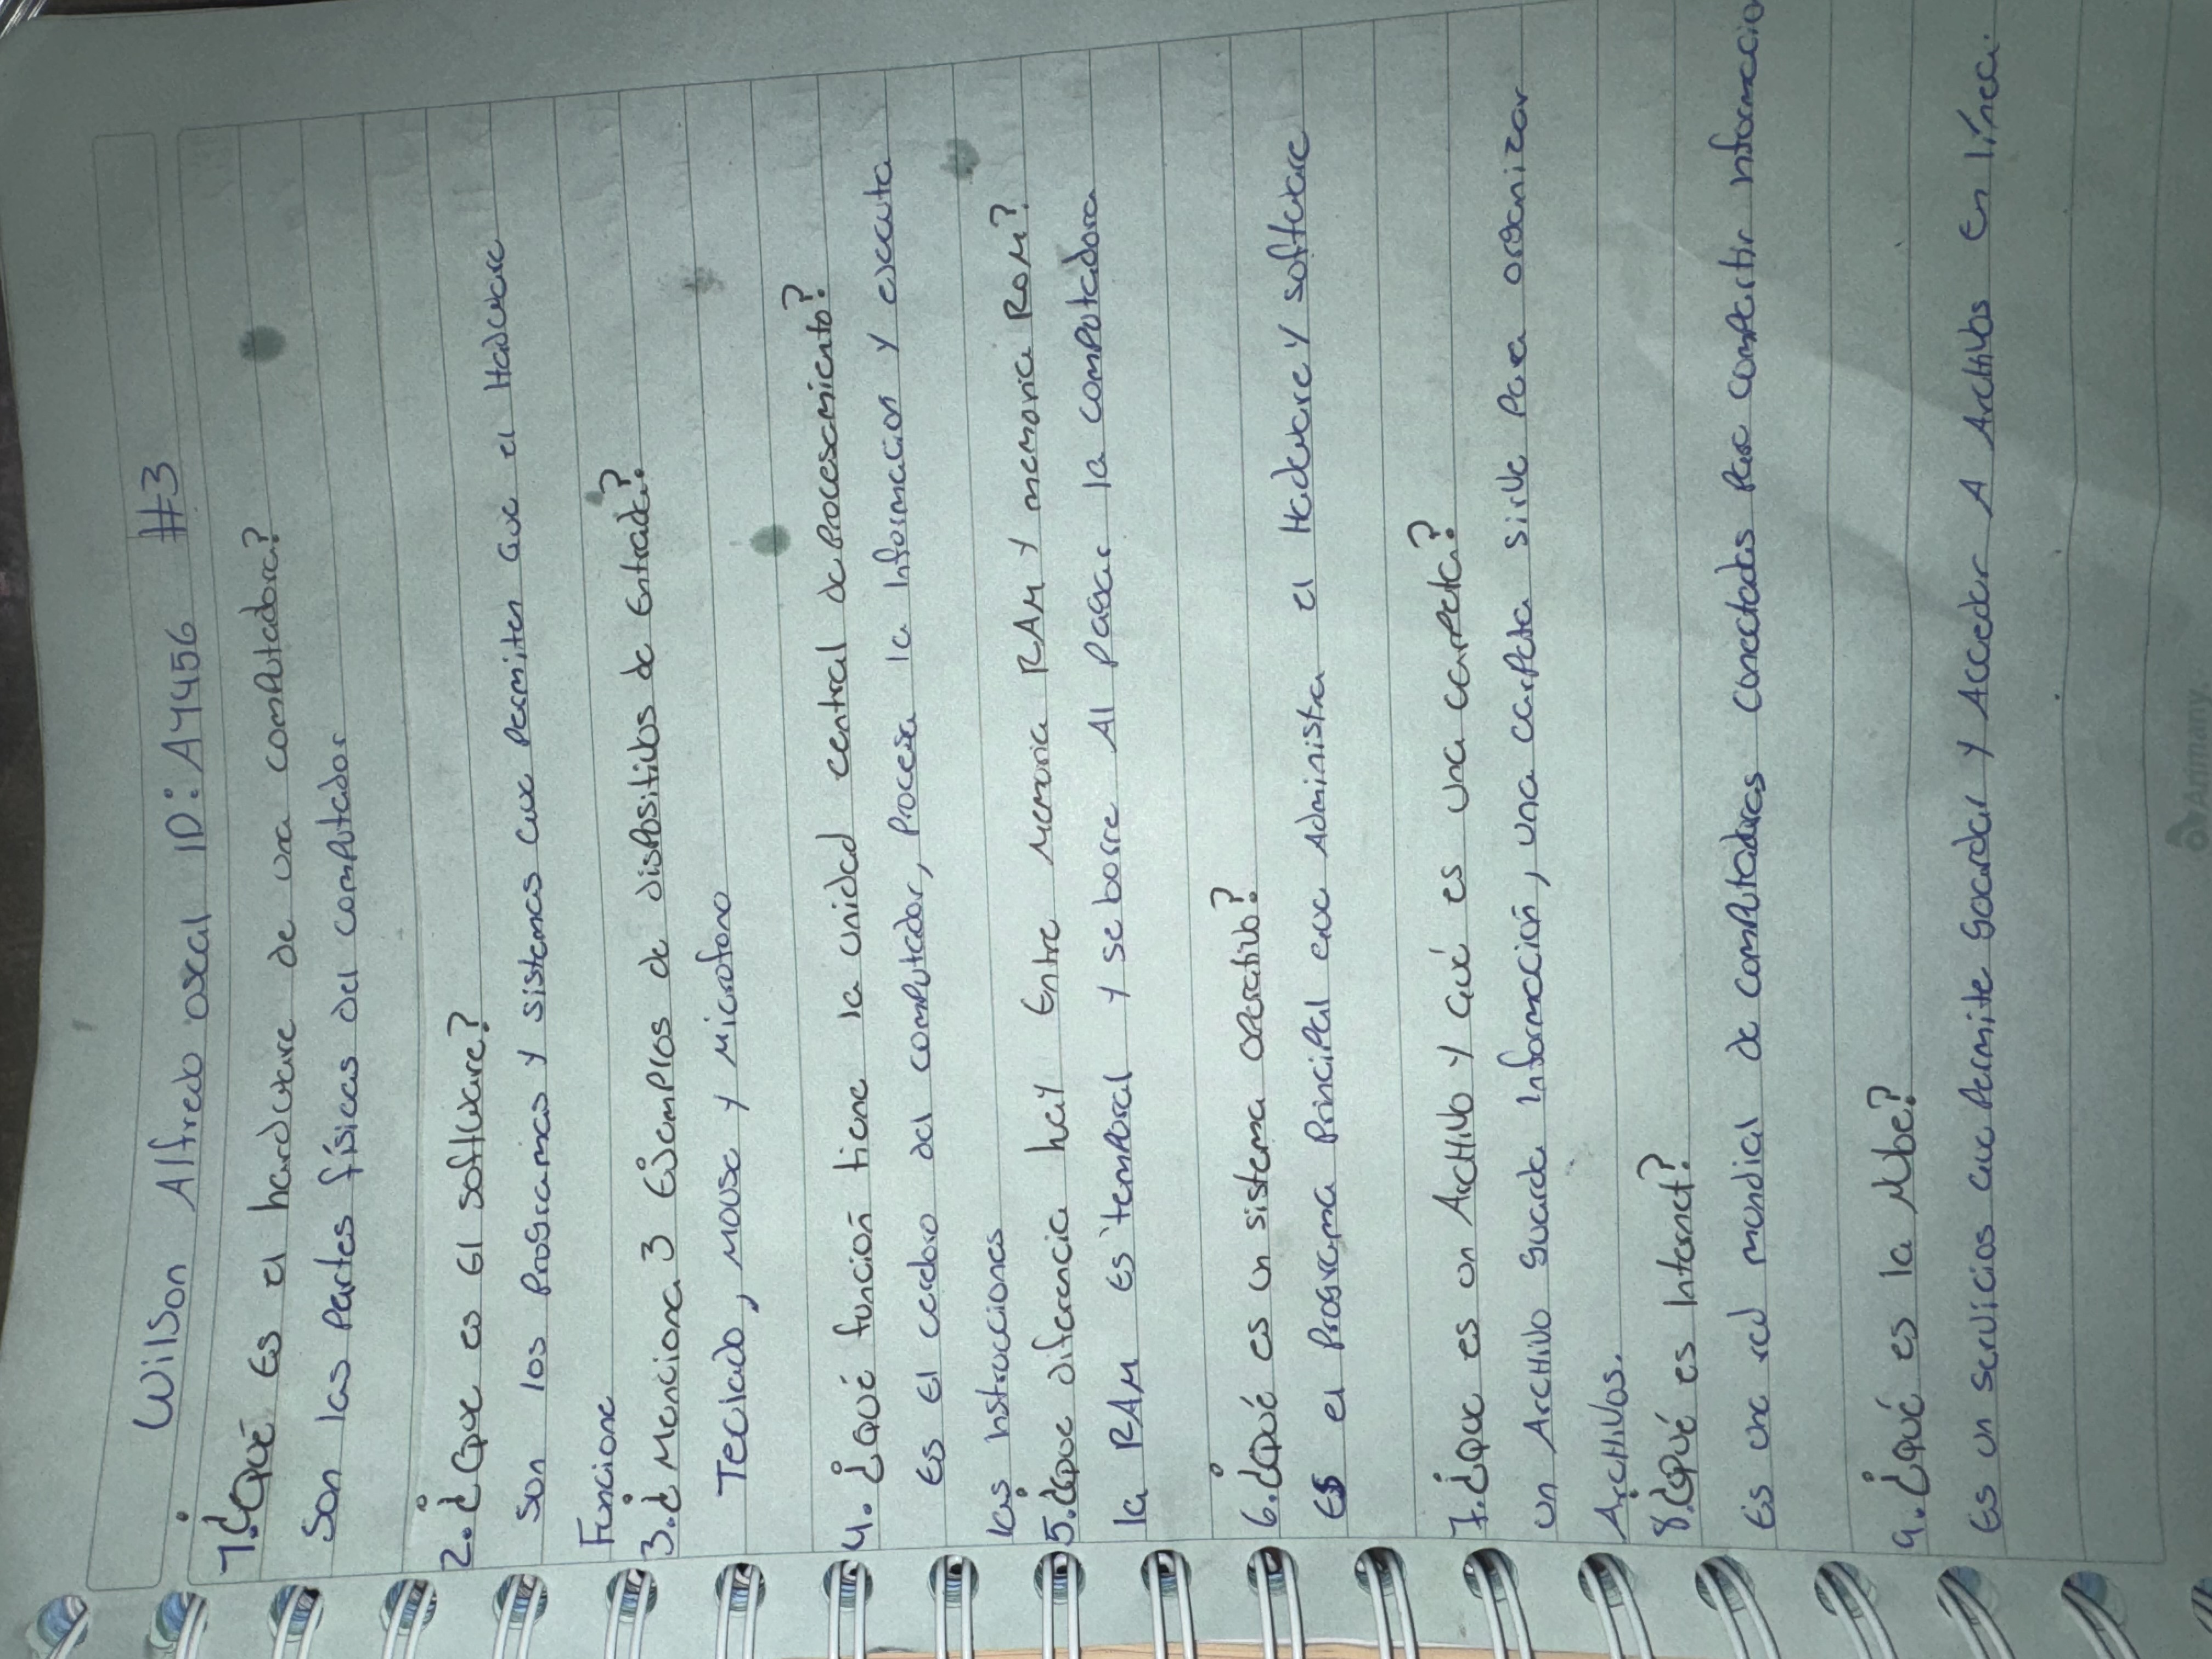 Wilson Alfredo oscal ID: A4456 #3
1. ¿Qué Es el hardware de una computadora?
Son las Partes físicas del computador
2. ¿Que es El software?
Son los Programas y sistemas que Permiten que el Hadware
Funcione
3. ¿Menciona 3 Ejemplos de dispositivos de Entrada?
Teclado, Mouse y Microfono
4. ¿Qué función tiene la unidad central de Procesamiento?
Es El cerebro del computador, Procesa la Informacion y ejecuta
las Instrucciones
5. ¿que diferencia hay Entre Memoria RAM y memoria ROM?
la RAM Es temporal y se borra Al Pagar la computadora
6. ¿Qué es un sistema operativo?
Es el Programa Principal que Administra el Hadware y software
7. ¿Que es un Archivo y qué es una carpeta?
un Archivo guarda Información, una carpeta sirve Para organizar
Archivos.
8. ¿Qué es Internet?
Es una red mundial de computadoras conectadas Para compartir Informacio
9. ¿Qué es la Nube?
Es un servicios que Permite guardar y Acceder A Archivos en línea.
Arimany